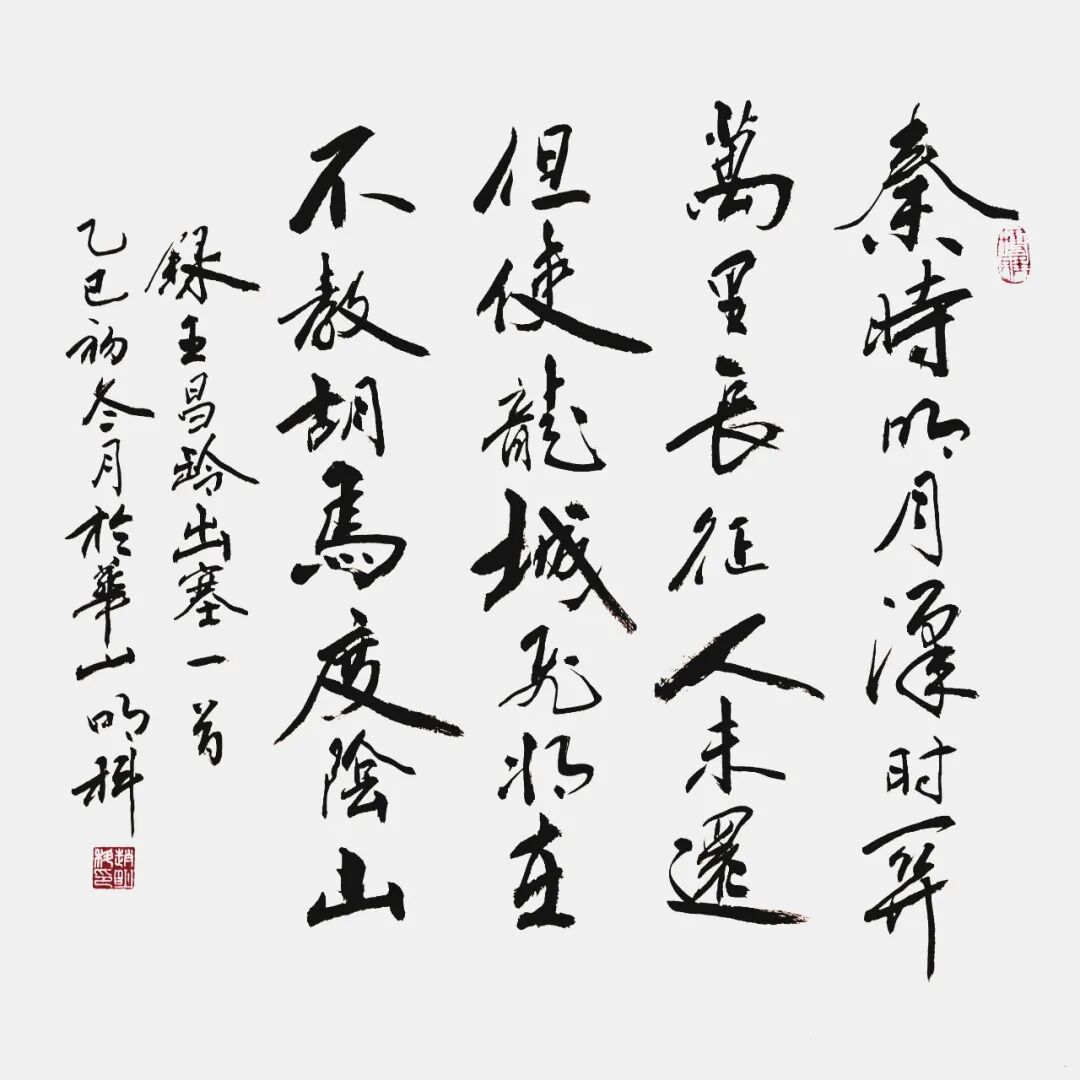 秦時明月漢时關
萬里長征人未還
但使龍城飛將在
不教胡馬度陰山
錄王昌齡出塞一首
乙巳初冬月於華山明科